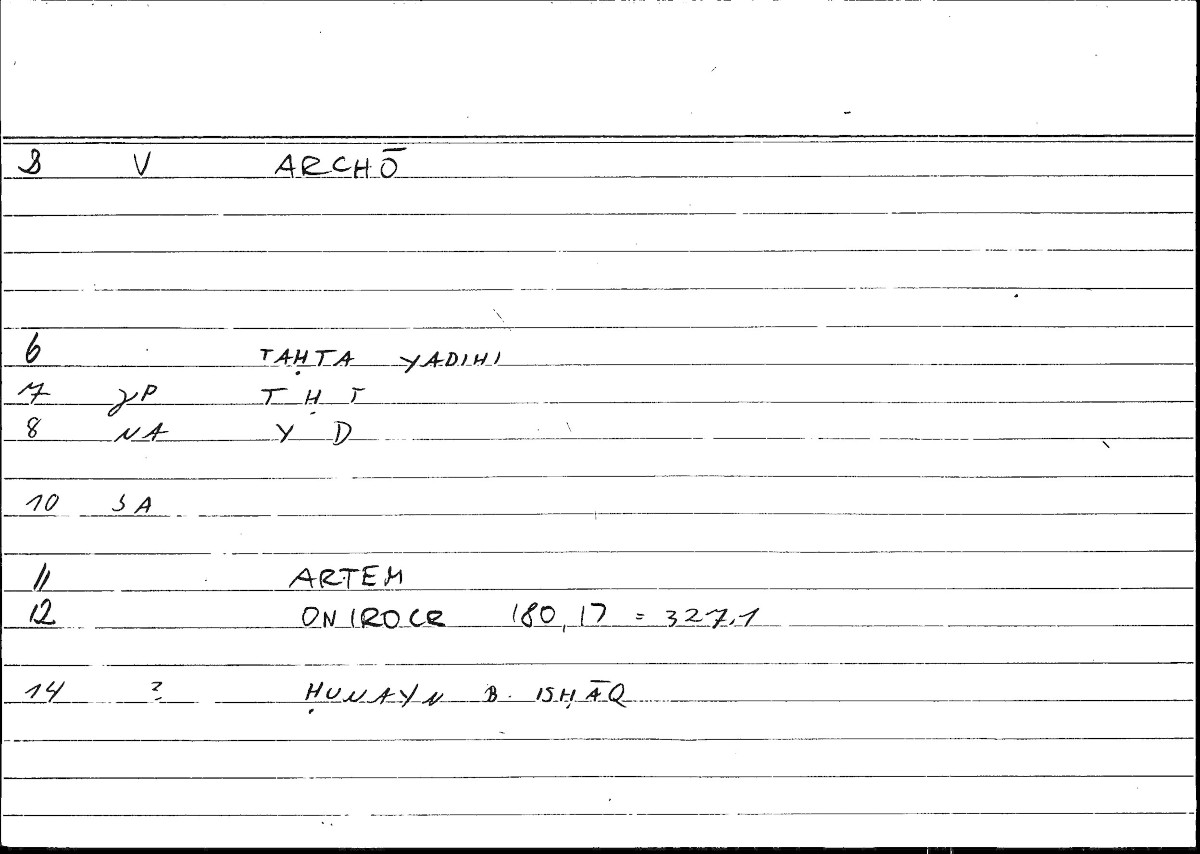 3 V ARCHŌ
6 TAḤTA YADIHI
7 γP T Ḥ T
8 NA Y D
10 SA
11 ARTEM
12 ONIROCR 180,17 = 327,1
14 ? ḤUNAYN B. ISḤĀQ